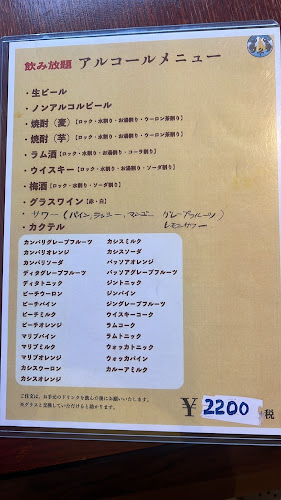 飲み放題 アルコールメニュー
・生ビール
・ノンアルコールビール
・焼酎（麦）【ロック・水割り・お湯割り・ウーロン茶割り】
・焼酎（芋）【ロック・水割り・お湯割り・ウーロン茶割り】
・ラム酒【ロック・水割り・お湯割り・コーラ割り】
・ウイスキー【ロック・水割り・お湯割り・ソーダ割り】
・梅酒【ロック・水割り・ソーダ割り】
・グラスワイン【赤・白】
・サワー（パイン、ラッシー、マンゴー グレープフルーツ）
レモンサワー
・カクテル
カンパリグレープフルーツ
カンパリオレンジ
カンパリソーダ
ディタグレープフルーツ
ディタトニック
ピーチウーロン
ピーチパイン
ピーチミルク
ピーチオレンジ
マリブパイン
マリブミルク
マリブオレンジ
カシスウーロン
カシスオレンジ
カシスミルク
カシスソーダ
パッソアオレンジ
パッソアグレープフルーツ
ジントニック
ジンパイン
ジングレープフルーツ
ウイスキーコーク
ラムコーク
ラムトニック
ウォッカトニック
ウォッカパイン
カルーアミルク
ご注文は、お手元のドリンクを飲んで後にお願いいたします。
※グラスと交換していただけると助かります。
￥2200 税